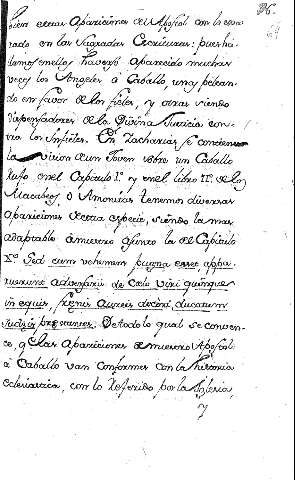 96.
bien estas Apariciones del Apostol con lo enarrado en las Sagradas Escrituras: pues ha
llamos en ellos haverse aparecido muchas
veces los Angeles á Caballo, unas pelean
do en favor de los fieles, y otras siendo
dispensadores de la Divina Justicia con
tra los Infieles. En Zacharias se contiene
la vision de un Joven sobre un Caballo
rufo en el Capitulo 1º. y en el libro IIº. de los
Macabeos, ó Amonitas tenemos diversas
apariciones de esta especie, siendo la mas
adaptable á nuestro asunto la del Capitulo
Xº. Sed cum vehemens pugna esset appa
ruerunt adversariis de Cœlo viri quinque
in equis, frenis Aureis decori ducatum
Judæis prestantes. De todo lo qual se conven
ce, q. las Apariciones de nuestro Apostol
á Caballo van Conformes con la historia
eclesiastica, con lo referido por la Iglesia,
y